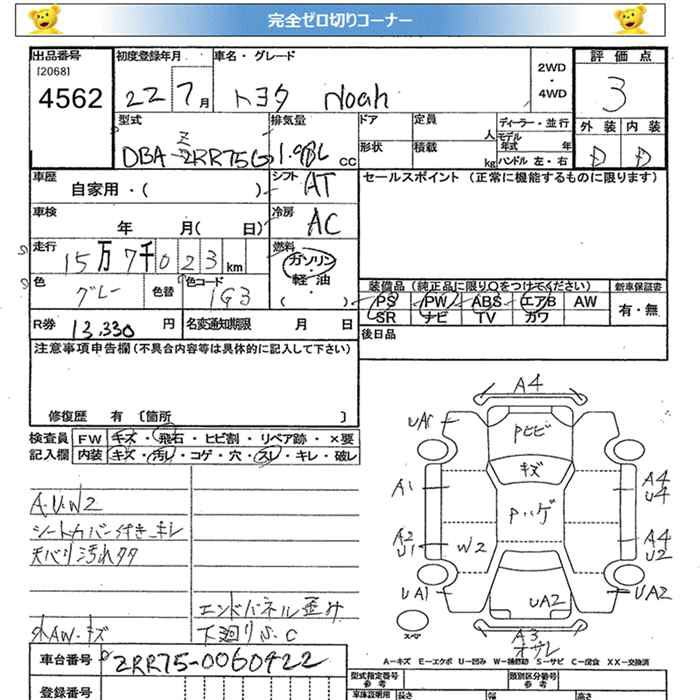 完全ゼロ切りコーナー
出品番号 初度登録年月 車名・グレード 評価点
[2068]
4562 22 7月 トヨタ Noah 2WD・4WD 3
外装 内装
D D
型式 排気量 ドア 定員 人 ディーラー・並行
モデル年式 年
DBA-ZRR75G 1.98L cc 形状 積載 kg ハンドル 左・右
車歴 自家用・( ) シフト AT セールスポイント (正常に機能するものに限ります)
車検 年 月( 日) 冷房 AC
走行 15万7千023km 燃料 ガソリン・軽油・( )
色 グレー 色替 色コード 1G3
装備品(純正品に限り○をつけてください) 新車保証書
PS PW ABS エアB AW 有・無
SR ナビ TV カワ
R券 13,330円 名変通知期限 月 日 後日品
注意事項申告欄(不具合内容等は具体的に記入して下さい)
修復歴 有 [箇所 ]
検査員 FW キズ・飛石・ヒビ割・リペア跡・×要
記入欄 内装 キズ・汚レ・コゲ・穴・スレ・キレ・破レ
A.U.W2
シートカバー付き キレ
天バリ汚れタタ
エンドパネル歪み
外AW・キズ 下廻りS.C
A4
UA1
Pヒビ
キズ
A1
A4
U4
Pハゲ
A2
U1
W2
A4
U2
UA1
UA2
UA2
スペア
A3
オサレ
A-キズ E-エクボ U-凹み W-補修跡 S-サビ C-腐食 XX-交換済
車台番号 ZRR75-0060422
型式指定番号 参考 類別区分番号 参考
登録番号 車庫証明用 長さ 幅 高さ